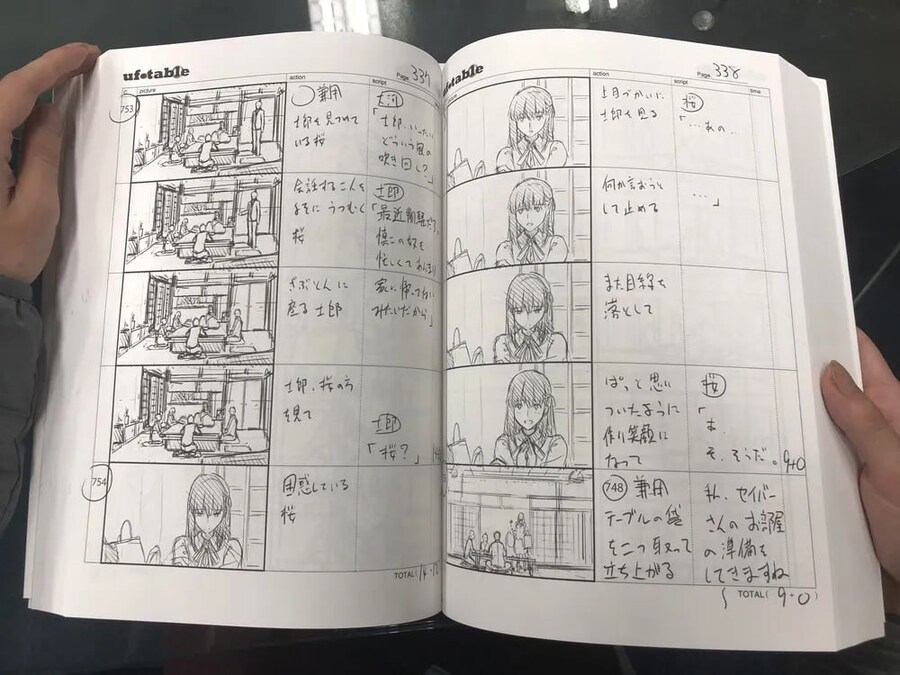 ufotable
Page 337
C
picture
action
script
753
兼用
士郎を見つめて
いる桜
大河
「士郎、いったい
どういう風の
吹き回し?」
会話する二人を
よそに うつむく
桜
士郎
「最近
慎二の奴も
忙しくてあんまり
ざぶとんに
座る士郎
家に帰ってない
みたいだから」
士郎、桜の方
を見て
士郎
「桜?」
754
困惑している
桜
TOTAL(
table
Page 338
action
script
time
上目づかいに
士郎を見る
桜
「…あの…
何か言おうと
して止める
…」
また目線を
落として
ぱっと思い
ついたように
作り笑顔に
なって
桜
「あ、
そ、そうだ。
9+0
748 兼用
テーブルの袋
を二つ取って
立ち上がる
私、セイバー
さんのお部屋
の準備を
してきますね
TOTAL( 9+0 )